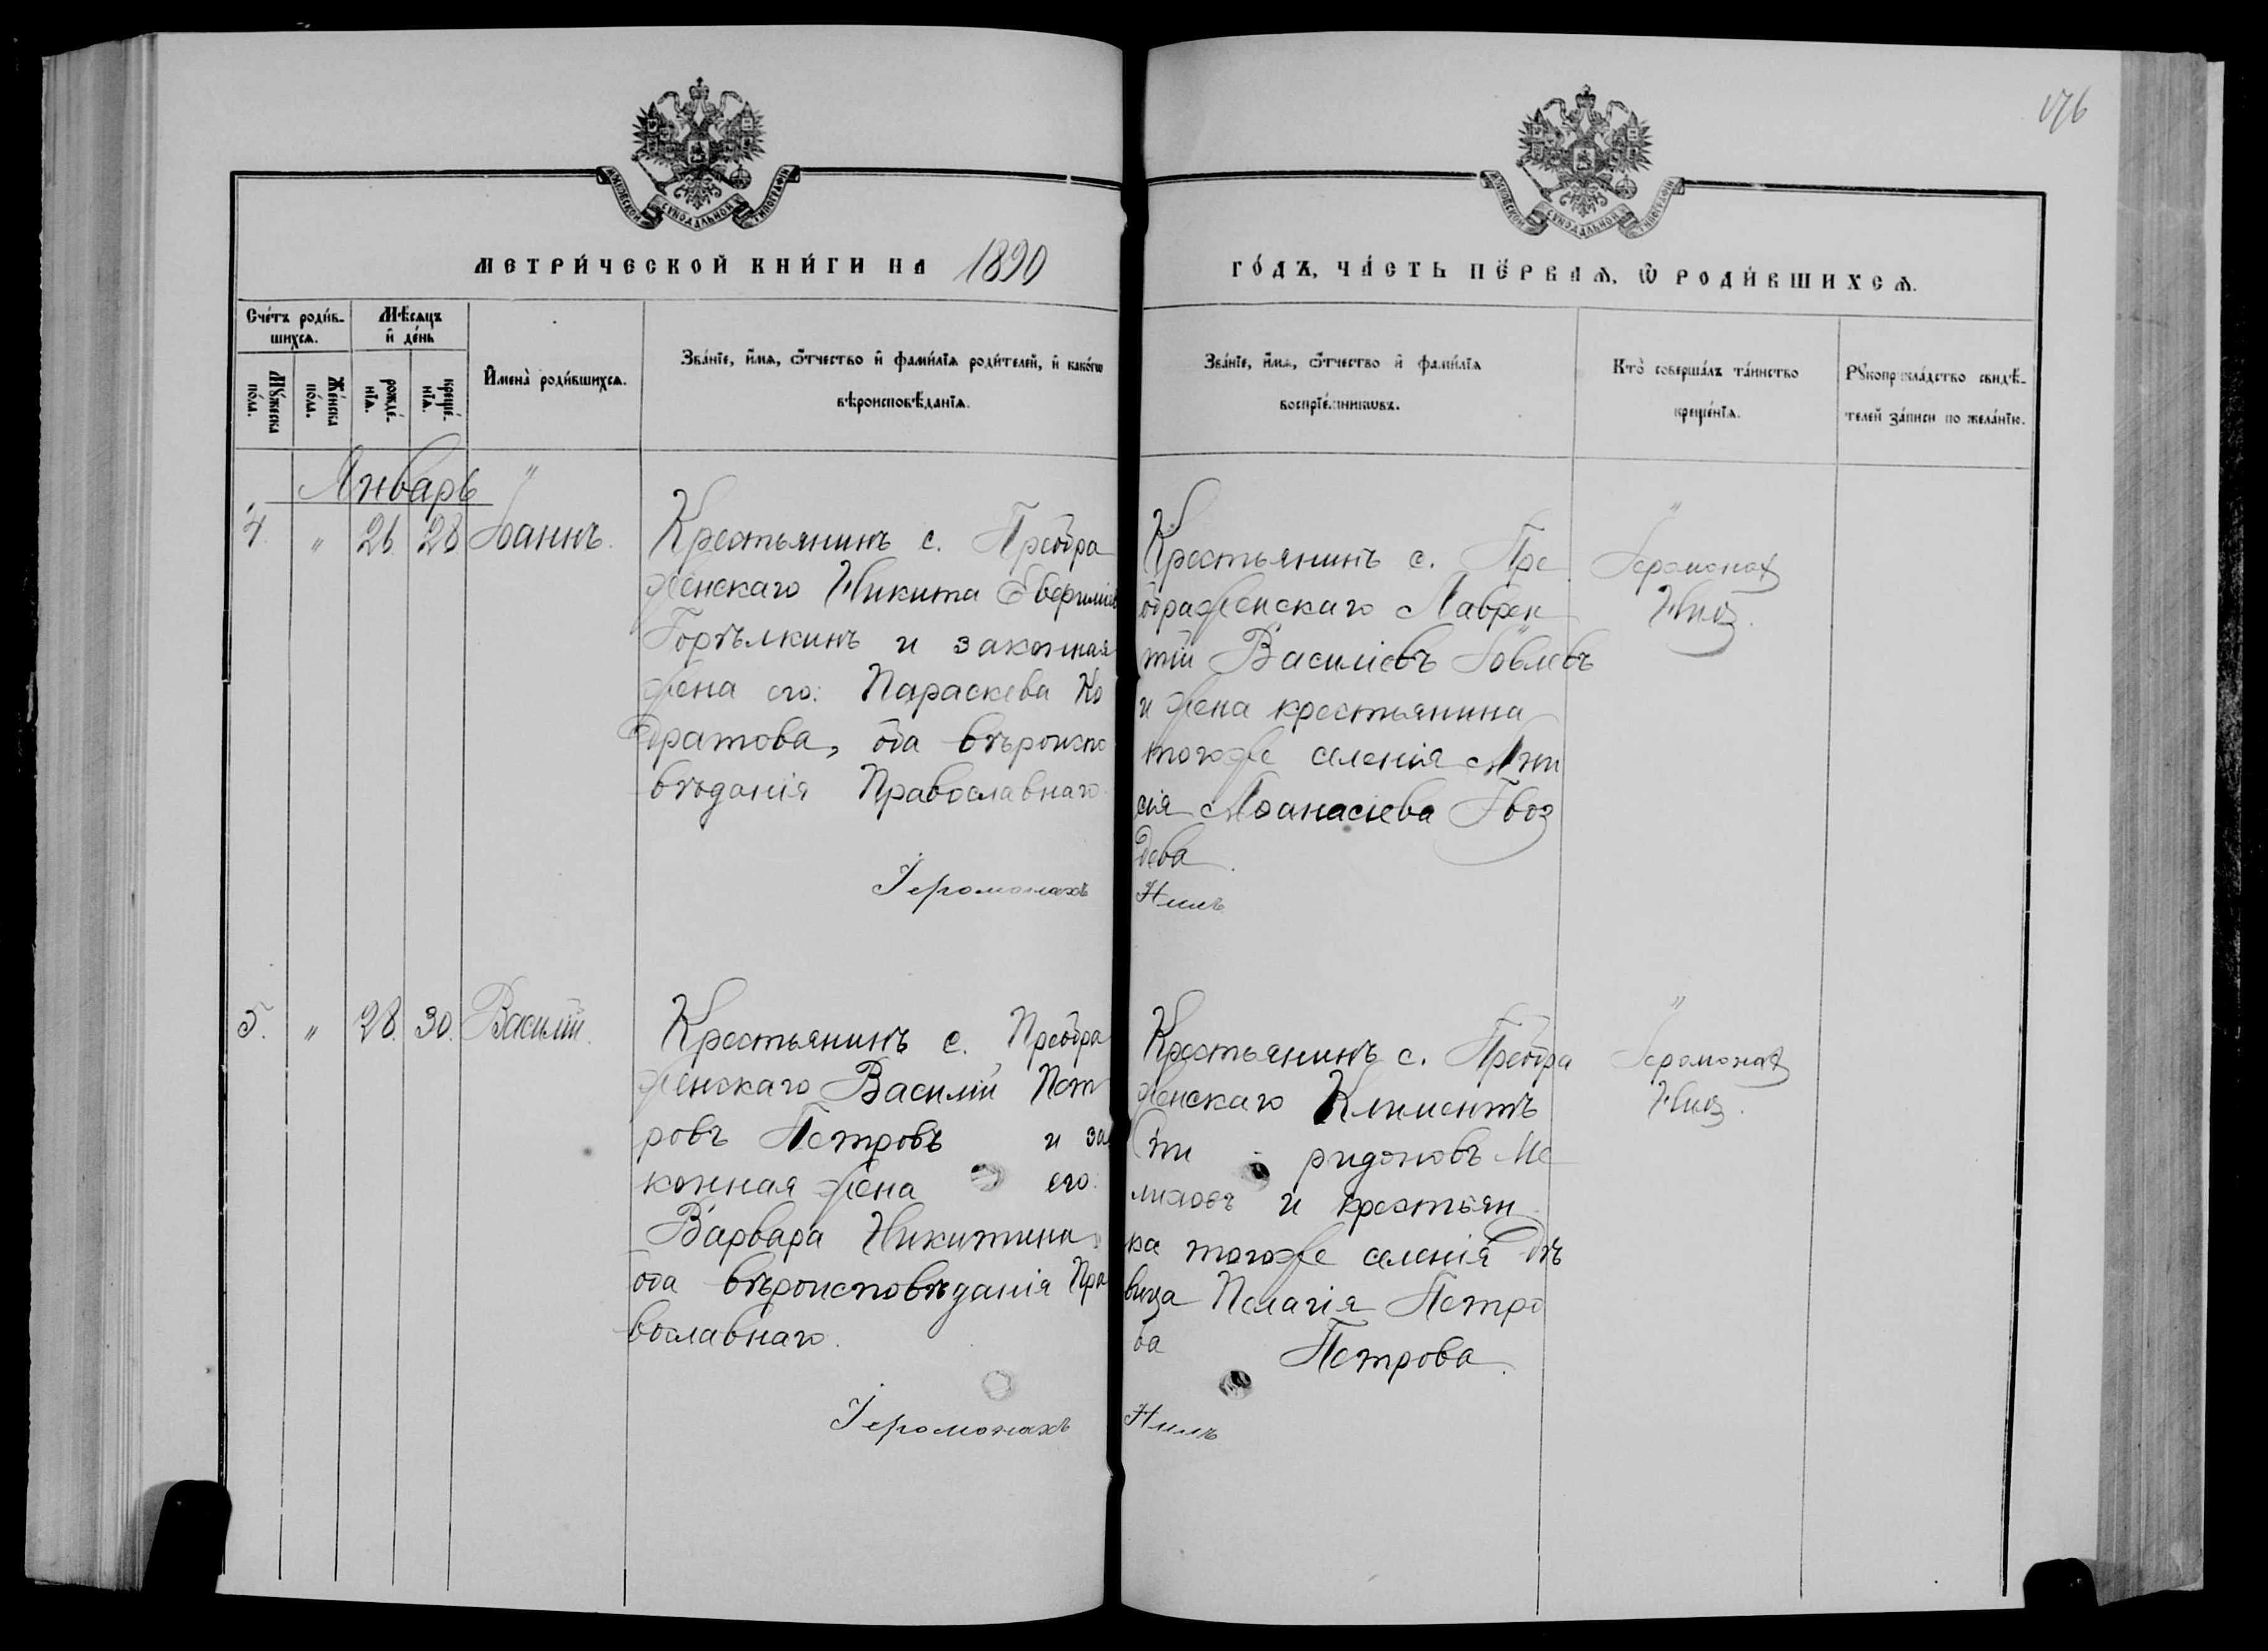 176
МОСКОВСКОЙ СѴНОДАЛЬНОЙ ТИПОГРАФІИ
МОСКОВСКОЙ СѴНОДАЛЬНОЙ ТИПОГРАФІИ
МЕТРИ́ЧЕСКОЙ КНИ́ГИ НА 1890
ГО́ДЪ, ЧА́СТЬ ПЕ́РВАѦ, Ѿ РОДИ́ВШИХСѦ.
Сче́тъ роди́в-
шихсѧ.
Мꙋ́жеска
по́ла.
Же́нска
по́ла.
Мѣ́сѧцъ
и҆ де́нь
рожде́-
нїѧ.
креще́-
нїѧ.
И҆мена̀ роди́вшихсѧ.
Зва́нїе, и҆́мѧ, ѻ҆́тчество и҆ фами́лїѧ роди́телей, и҆ како́гѡ
вѣроисповѣ́данїѧ.
Зва́нїе, и҆́мѧ, ѻ҆́тчество и҆ фами́лїѧ
воспрїе́мникѡвъ.
Кто̀ соверша́лъ та́инство
креще́нїѧ.
Рꙋкоприкла́дство свидѣ́-
телей за́писи по жела́нїю.
Январь
4. " 26. 28 Іоаннъ.
Крестьянинъ с. Преобра
женскаго Никита
Горѣлкинъ и законная
жена его: Параскева Ко
дратова, оба вѣроиспо
вѣданія Православнаго
Іеромонахъ
Крестьянинъ с. Пре
ображенскаго Лаврен
тій Василіевъ Іовлевъ
и жена крестьянина
тогоже селенія Ани
сія Аѳанасіева Гвоз
дева.
Нилъ
"
Іеромонах
Нил.
5. " 28. 30. Василій.
Крестьянинъ с. Преобра
женскаго Василій Пет
ровъ Петровъ и за
конная жена его:
Варвара Никитина
оба вѣроисповѣданія Пра
вославнаго.
Іеромонахъ
Крестьянинъ с. Преобра
женскаго Климентъ
Спи ридоновъ Ме
лиховъ и крестьян
ка тогоже селенія дѣ
вица Пелагія Петро
ва Петрова.
Нилъ
"
Іеромонах
Нил.